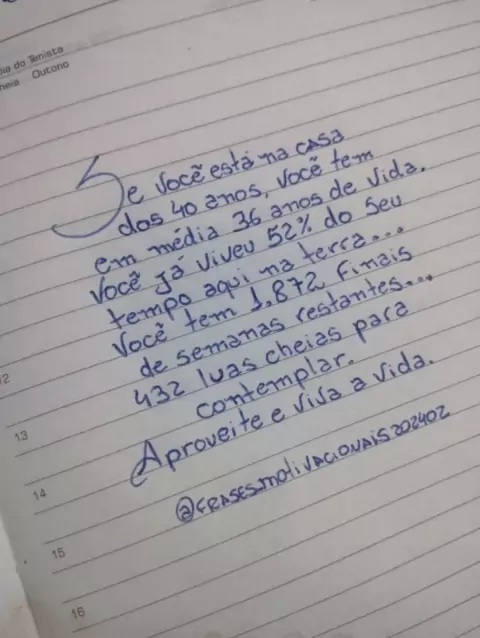 ia do Tenista
heia Outono
Se você está na casa
dos 40 anos, você tem
em média 36 anos de vida.
Você já viveu 52% do seu
tempo aqui na terra...
Você tem 1.872 finais
de semanas restantes...
432 luas cheias para
contemplar.
Aproveite e viva a vida.
@frasesmotivacionais202402
12
13
14
15
16